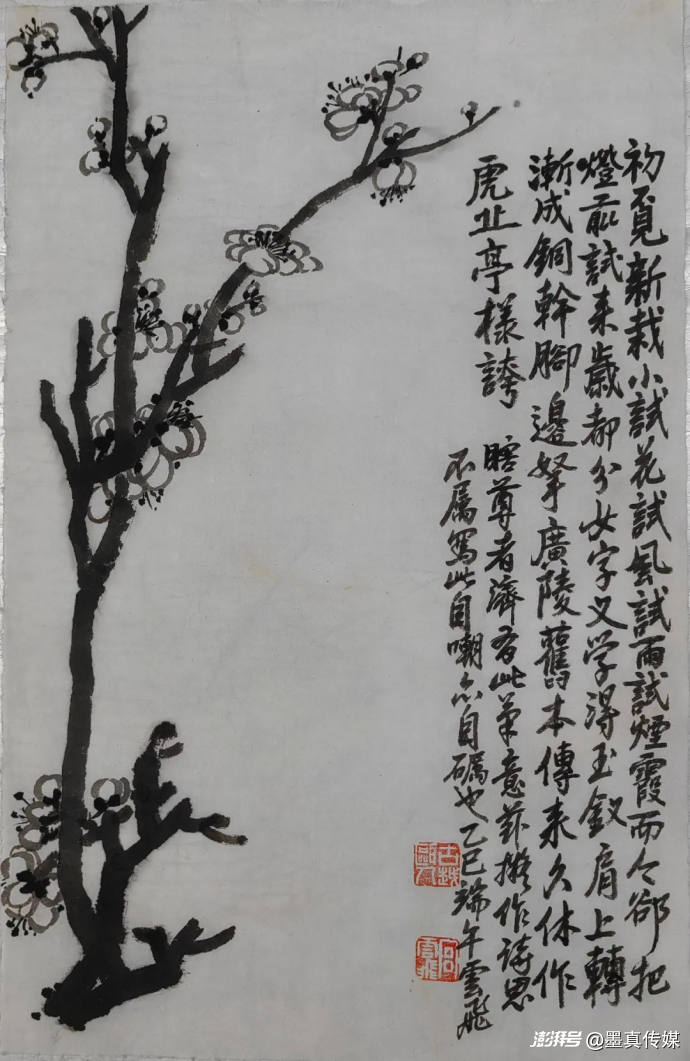 初覓新栽小試花試風試雨試煙霞而今卻把
燈前試來歲都分女字叉学得玉釵肩上轉
漸成銅幹腳邊拏廣陵舊本傳来久休作
虎止亭樣誇
瞎尊者濟有此筆意擬作詩思
不属寫此自嘲亦自礪也乙巳端午雲飛
澎湃号@墨真传媒